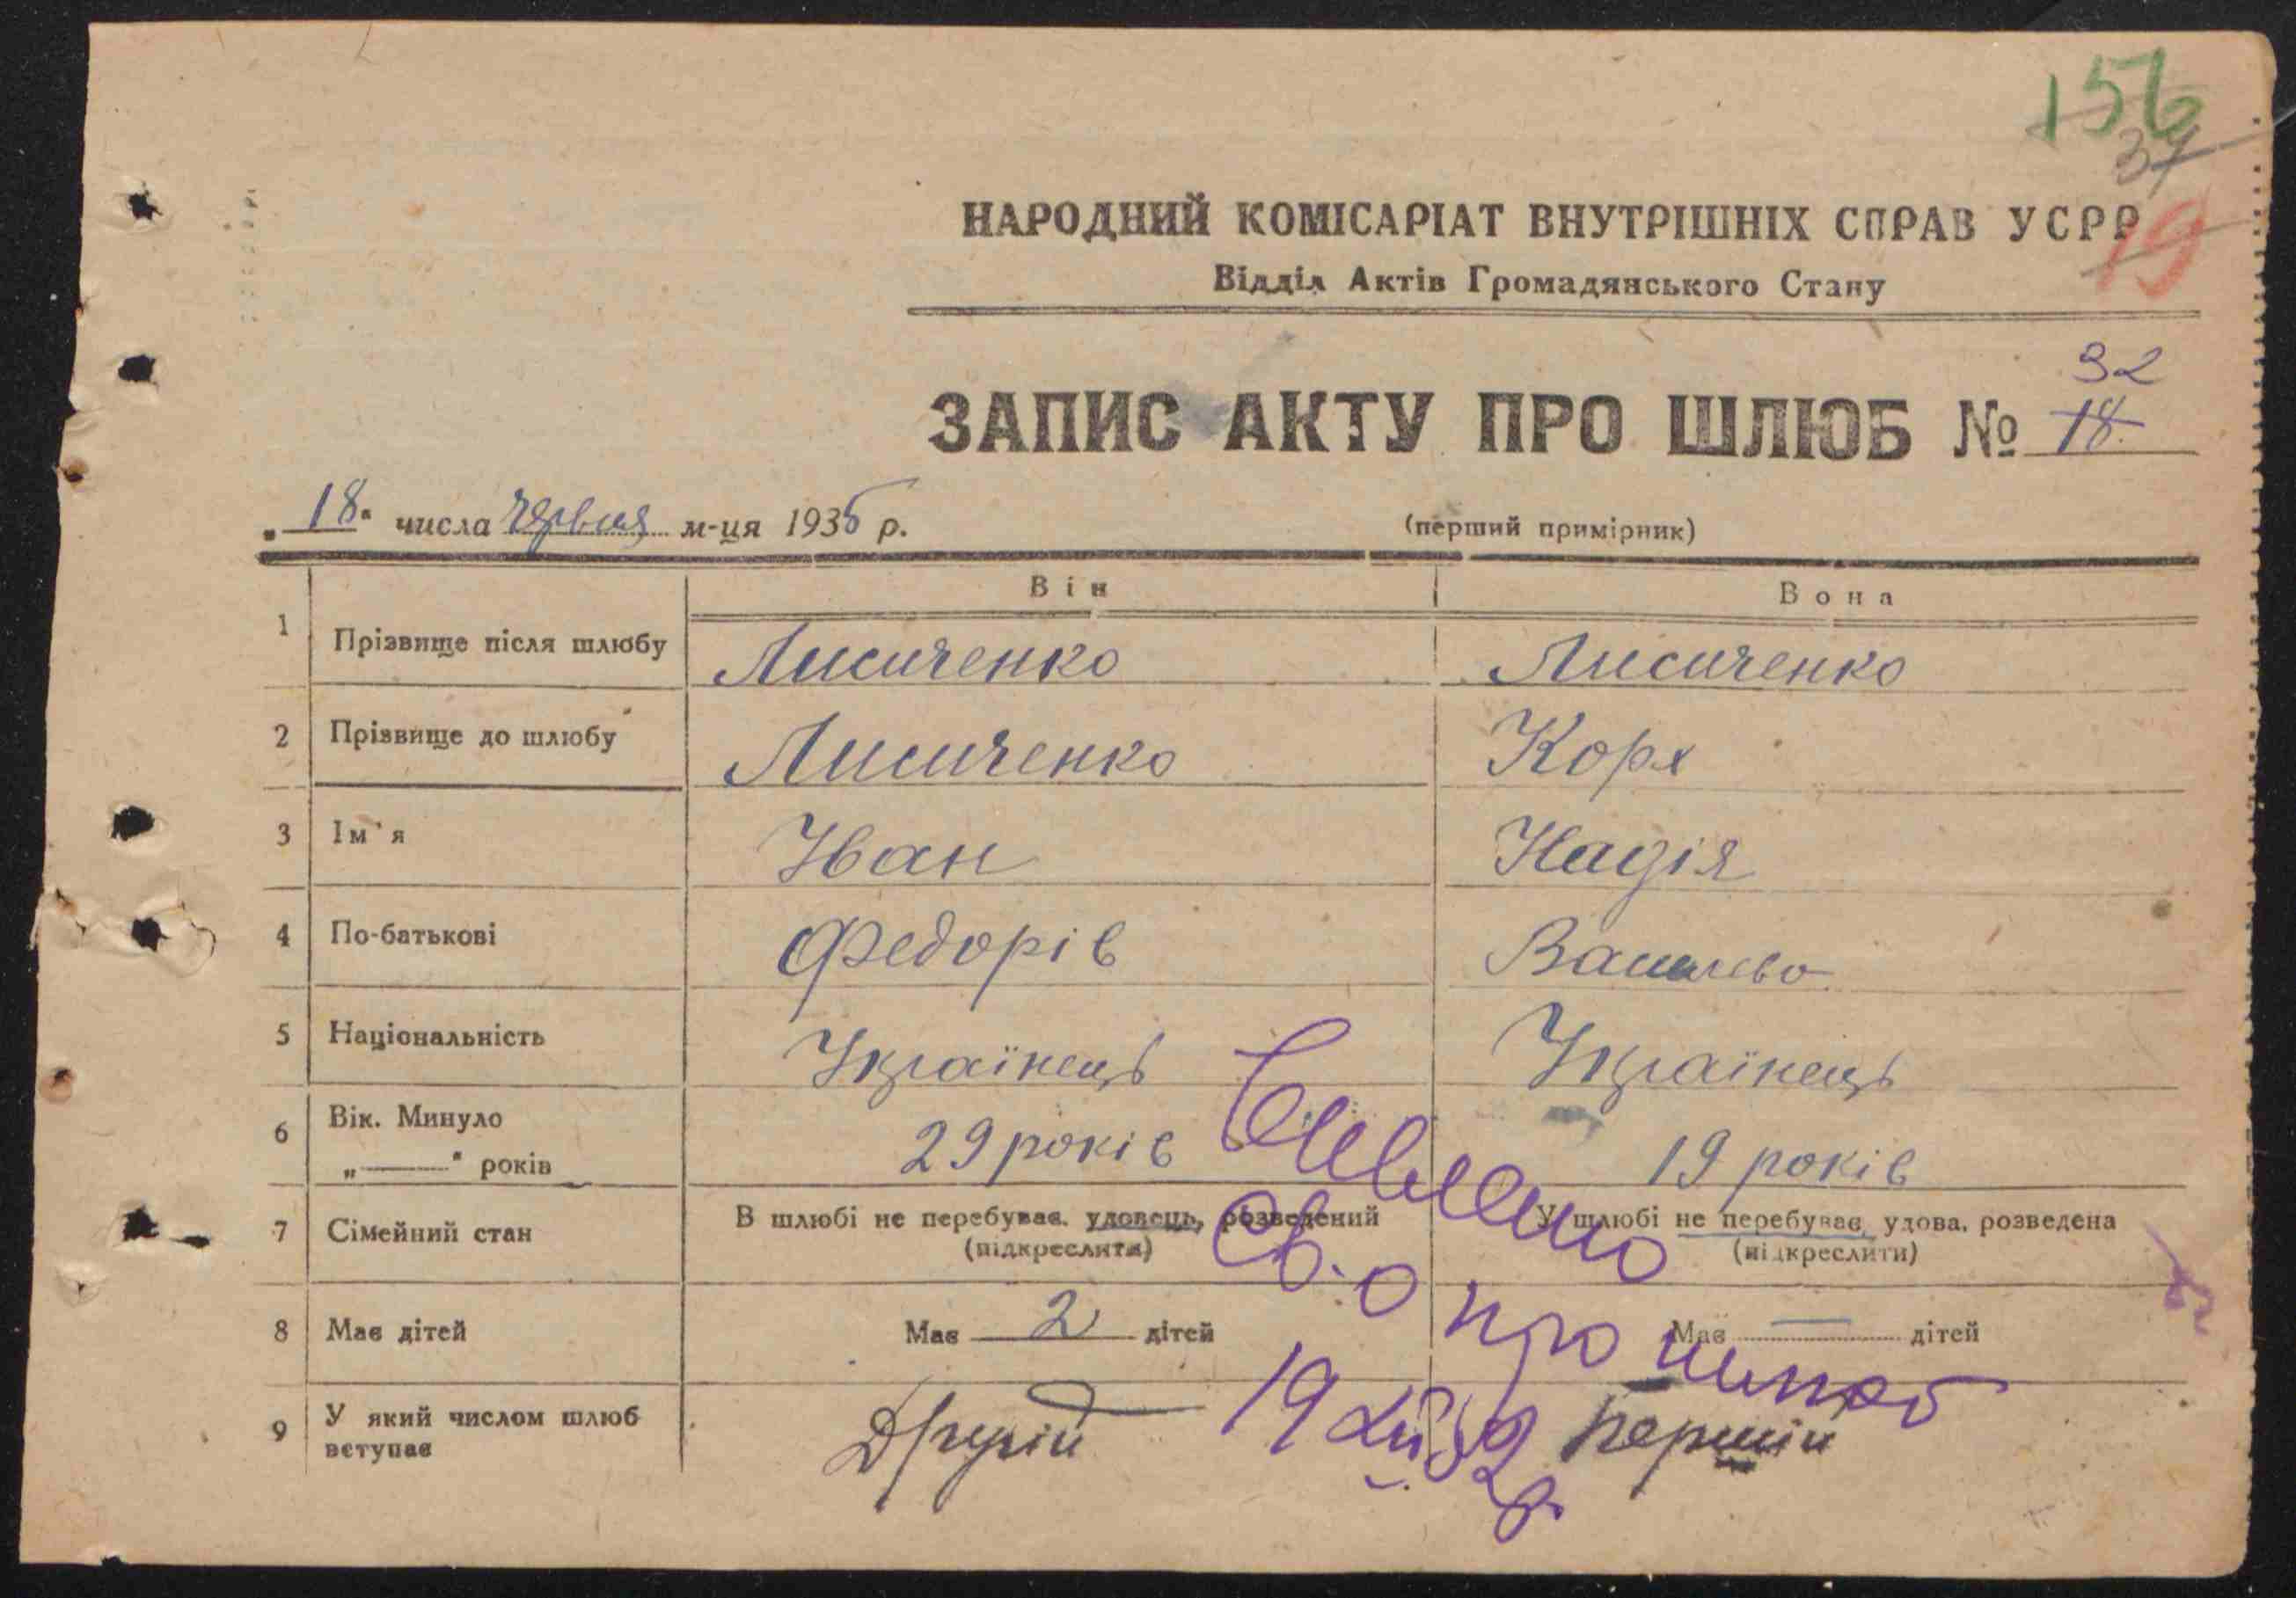 156
37
19
НАРОДНИЙ КОМІСАРІАТ ВНУТРІШНІХ СПРАВ УСРР
Відділ Актів Громадянського Стану
32
ЗАПИС АКТУ ПРО ШЛЮБ № 18
„18" числа червня м-ця 1935 р.
(перший примірник)
Він Вона
1 Прізвище після шлюбу Лисиченко Лисиченко
2 Прізвище до шлюбу Лисиченко Корх
3 Ім'я Іван Надія
4 По-батькові Федорів
5 Національність Українець Українець
6 Вік. Минуло „——" років 29 років 19 років
7 Сімейний стан В шлюбі не перебуває, удовець, розведений (підкреслити) У шлюбі не перебуває, удова, розведена (підкреслити)
8 Має дітей Має 2 дітей Має — дітей
9 У який числом шлюб вступає Другій Першій
св-о про шлюб